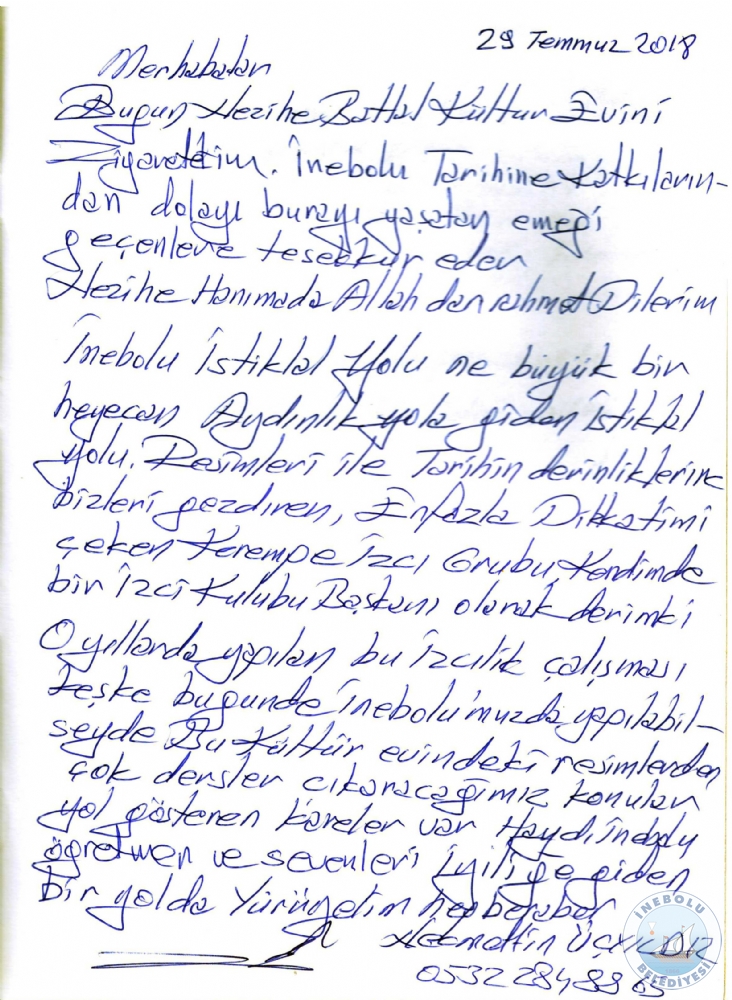 29 Temmuz 2018
Merhabalar
Bugün Nezihe Battal Kültür Evini
Ziyarettim. İnebolu Tarihine Katkıların-
dan dolayı burayı yaşatan emeği
geçenlere teşekkür eder
Nezihe Hanımada Allah dan rahmet Dilerim
İnebolu İstiklal Yolu ne büyük bir
heyecan Aydınlık yola giden İstiklal
yolu. Resimleri ile Tarihin derinliklerine
bizleri gezdiren, Enfazla Dikkatimi
çeken Kerempe İzci Grubu Kendimde
bir İzci Kulubu Başkanı olarak derimki
O yıllarda yapılan bu İzcilik çalışması
keşke bugünde İnebolu'muzda yapılabil-
seyde Bu Kültür evindeki resimlerden
çok dersler çıkaracağımız konular
yol gösteren kareler var Haydi İnebolu
öğretmen ve sevenleri iyiliğe giden
bir yolda Yürüyelim hep beraber
Necmettin ÜÇYILDIZ
0532 284 88 65
İNEBOLU
BELEDİYESİ